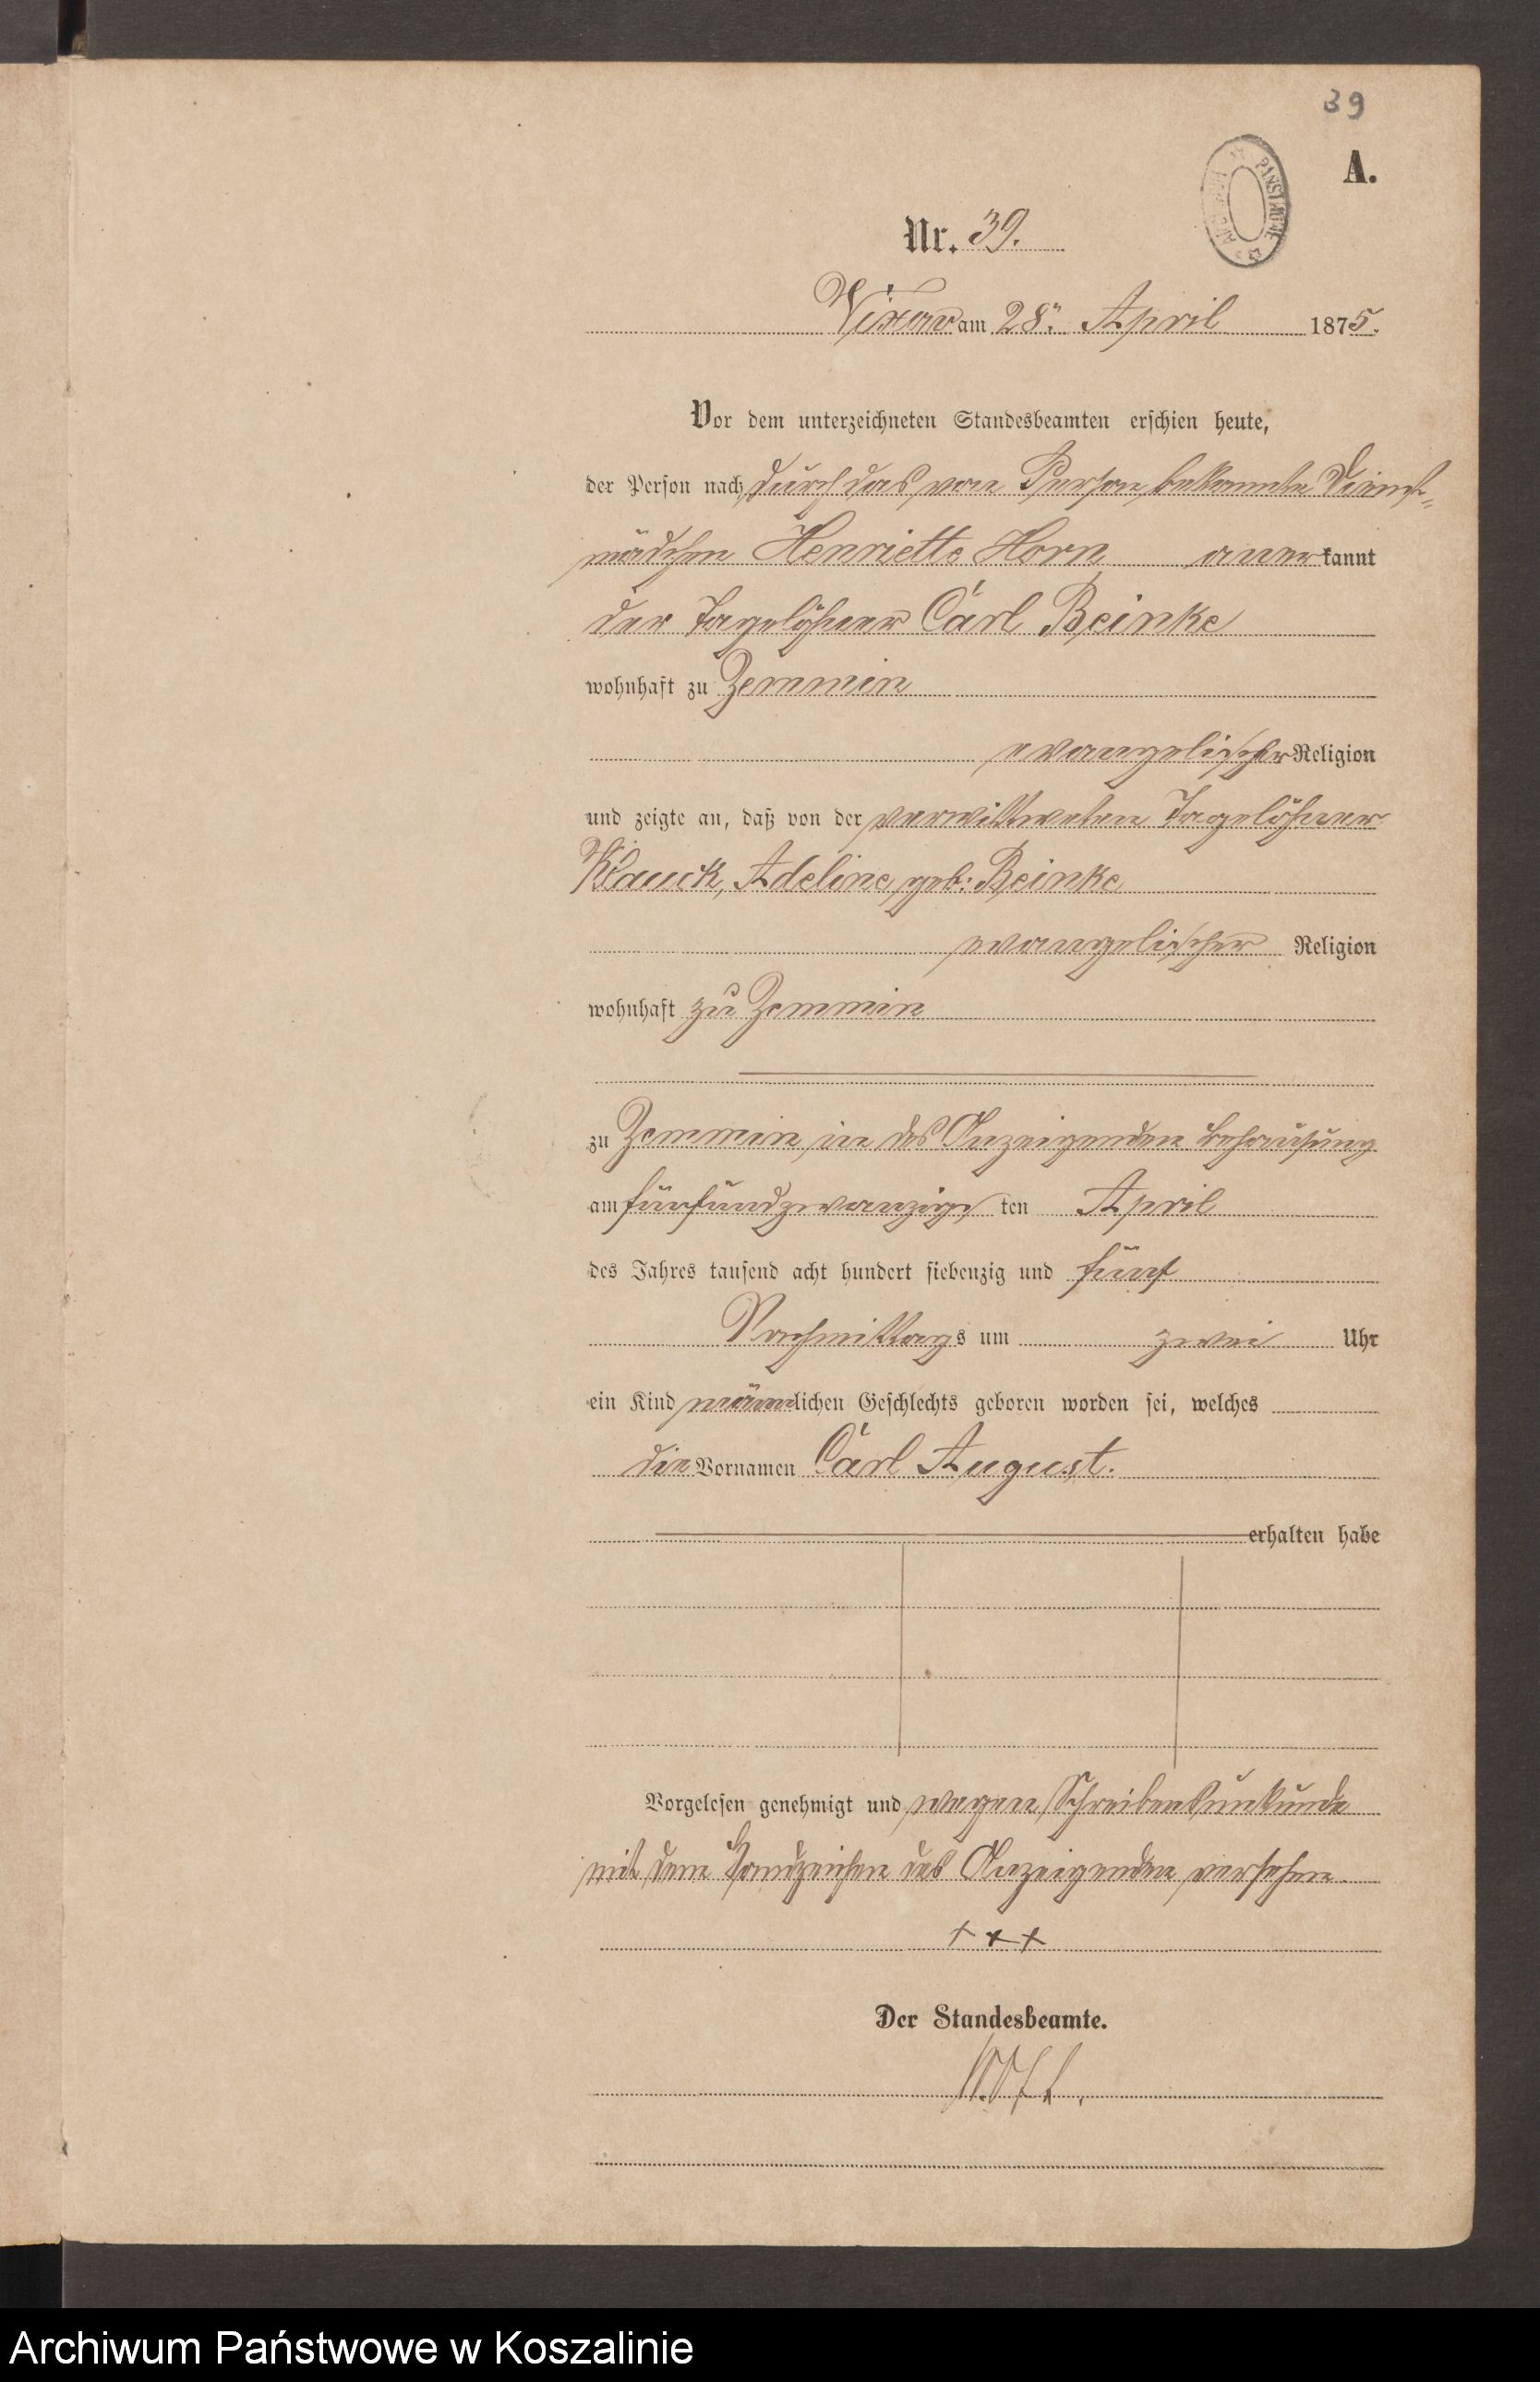 39
A.
Nr. 39.
am 28. April 1875.
Vor dem unterzeichneten Standesbeamten erschien heute,
der Person nach durch das von Person bekannte Dienst-
mädchen Henriette Horn anerkannt
der Tagelöhner Carl Beinke
wohnhaft zu Zemmin
evangelischer Religion
und zeigte an, daß von der verwittweten Tagelöhner
Klauck, Adeline, geb: Beinke
evangelischer Religion
wohnhaft zu Zemmin
zu Zemmin, in des Anzeigenden Behausung
am fünfundzwanzigsten April
des Jahres tausend acht hundert siebenzig und fünf
Nachmittags um zwei Uhr
ein Kind männlichen Geschlechts geboren worden sei, welches
die Vornamen Carl August.
erhalten habe
Vorgelesen genehmigt und wegen Schreibensunkunde
mit dem Handzeichen des Anzeigenden versehen.
+++
Der Standesbeamte.
Archiwum Państwowe w Koszalinie